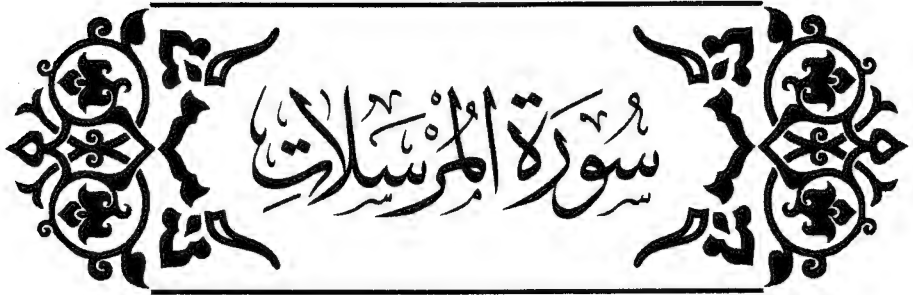 سُورَة المُرْسَلَاتِ